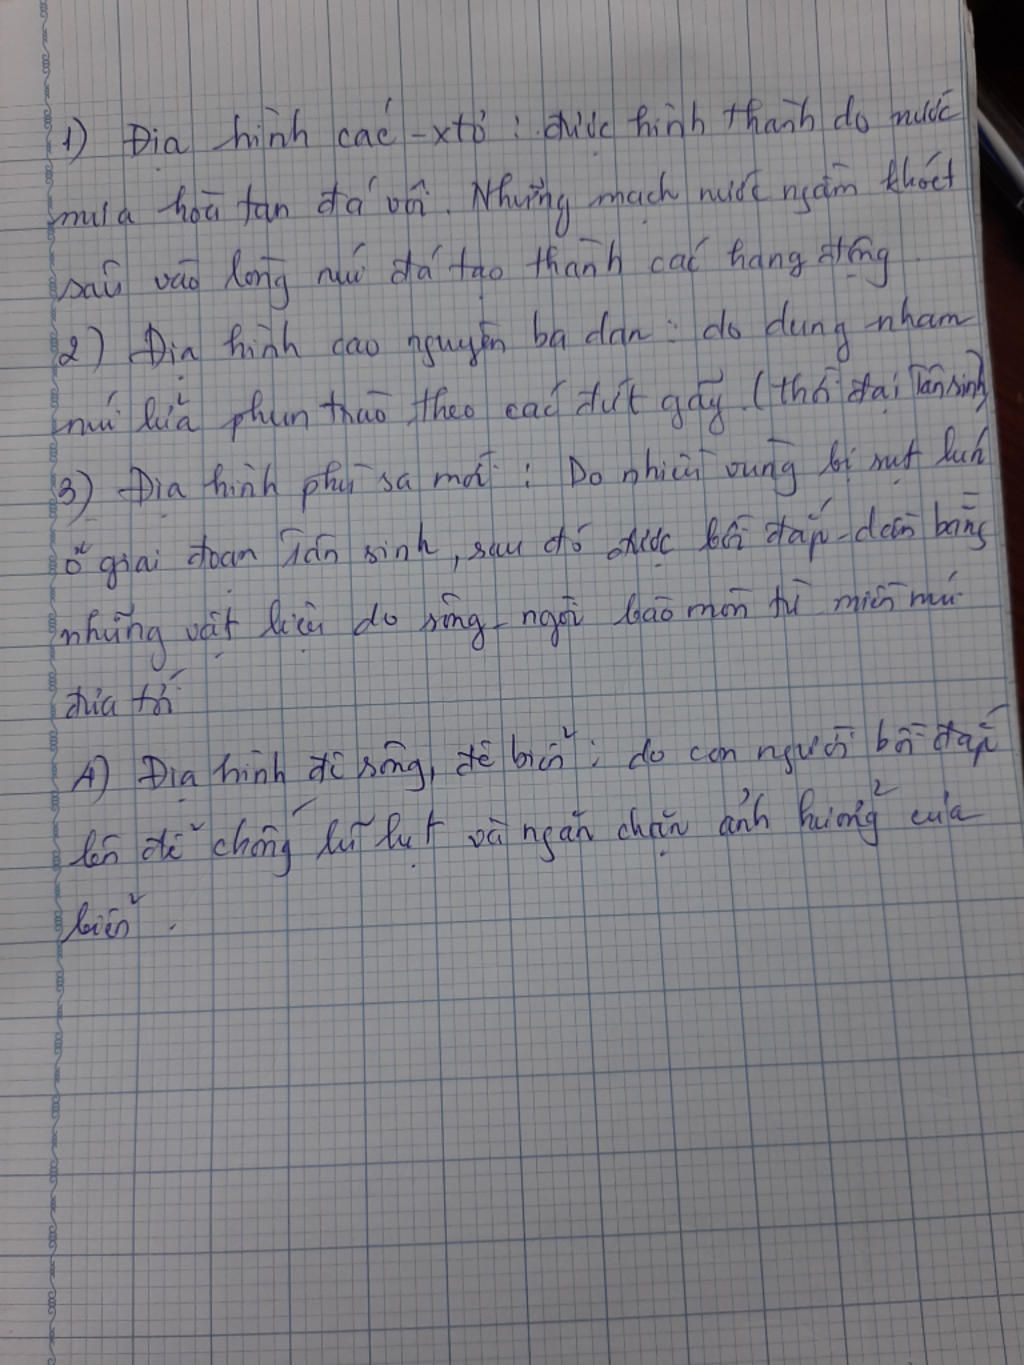 1) Địa hình các-xtơ : được hình thành do nước
mưa hoà tan đá vôi. Những mạch nước ngầm khoét
sâu vào lòng núi đá tạo thành các hang động
2) Địa hình cao nguyên ba dan : do dung nham
núi lửa phun trào theo các đứt gãy. (thời đại Tân sinh)
3) Địa hình phù sa mới : Do nhiều vùng bị sụt lún
ở giai đoạn Tân sinh, sau đó được bồi đắp dần bằng
những vật liệu do sông ngòi bào mòn từ miền núi
đưa tới
4) Địa hình đê sông, đê biển : do con người bồi đắp
lên để chống lũ lụt và ngăn chặn ảnh hưởng của
biển.